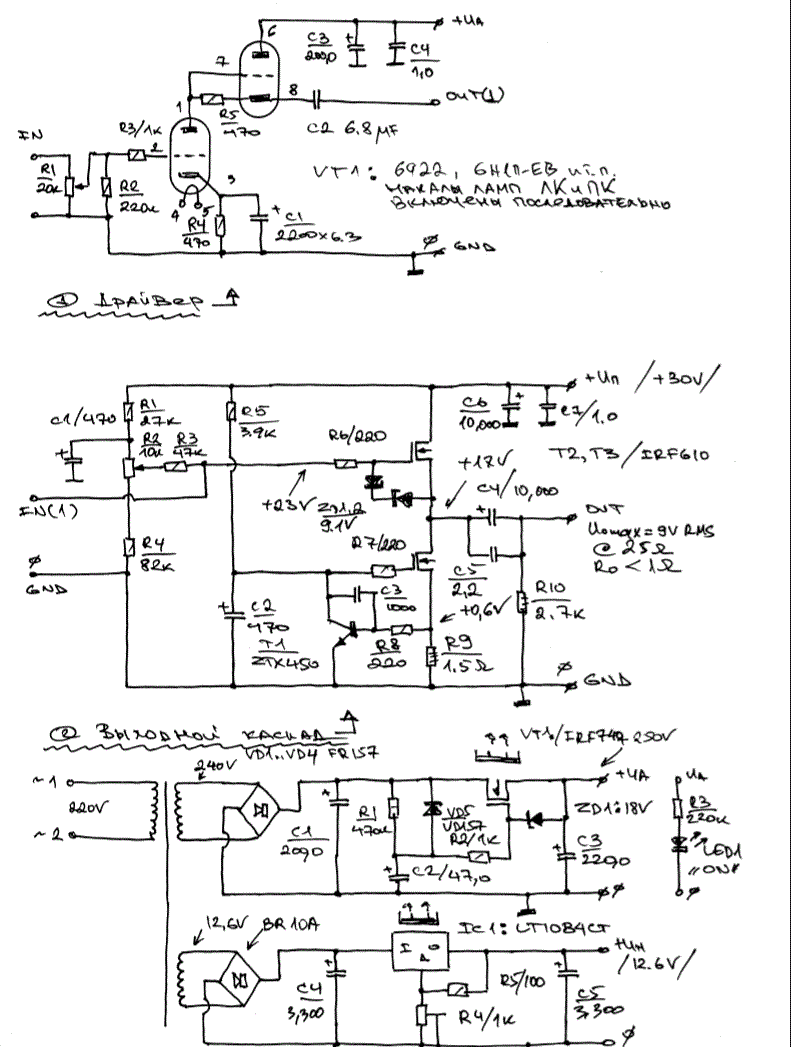 6
+UA
C3
200,0
C4
1,0
7
8
OUT(1)
1
R5
470
C2 6.8 μF
IN
R3/1K
2
VT1: 6922, 6Н1П-ЕВ и т.п.
НАКАЛЫ ЛАМП ЛК и ПК
ВКЛЮЧЕНЫ ПОСЛЕДОВАТЕЛЬНО
R1
20к
R2
220к
3
4
5
R4
470
C1
2200x6.3
GND
① ДРАЙВЕР
+Uп /+30V/
C1/470
R1
27K
R5
3.9K
C6
10,000
C7/1.0
R2
10к
R3
47K
R6/220
+12V
T2, T3/IRF610
IN(1)
+23V
ZD1,2
9.1V
C4/10,000
OUT
Uomax=9V RMS
@ 25Ω
Ro<1Ω
R4
82K
R7/220
C5
2,2
GND
C3
1000
R10
2.7K
C2
470
+0,6V
T1
ZTX450
R8
220
R9
1.5Ω
GND
② ВЫХОДНОЙ КАСКАД
VD1..VD4 FR157
VT1/IRF740 250V
~1
240V
+UA
UA
220V
ZD1:18V
R3
220к
~2
C1
200,0
R1
470к
VD5
VD157
R2/1K
C3
220,0
LED1
"ON"
C2/47,0
12,6V
BR10A
IC1: LT1084CT
I
A
O
+Uн
/12.6V/
C4
3,300
R5/100
R4/1K
C5
3,300